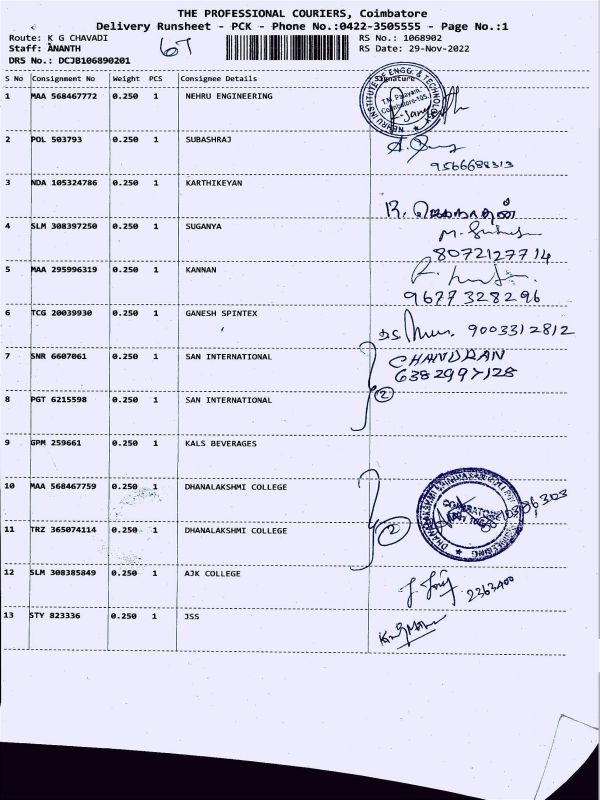 THE PROFESSIONAL COURIERS, Coimbatore
Delivery Runsheet - PCK - Phone No.:0422-3505555 - Page No.:1
Route: K G CHAVADI RS No.: 1068902
Staff: ANANTH 67 RS Date: 29-Nov-2022
DRS No.: DCJB106890201
S No Consignment No Weight PCS Consignee Details Signature
1 MAA 568467772 0.250 1 NEHRU ENGINEERING
NEHRU INSTITUTE OF ENGG. & TECHNOLOGY
T.M. Palayam,
Coimbatore-105.
2 POL 503793 0.250 1 SUBASHRAJ
9566688313
3 NDA 105324786 0.250 1 KARTHIKEYAN
4 SLM 308397250 0.250 1 SUGANYA
8072127714
5 MAA 295996319 0.250 1 KANNAN
9677328296
6 TCG 20039930 0.250 1 GANESH SPINTEX
9003312812
7 SNR 6607061 0.250 1 SAN INTERNATIONAL CHANDRAN
6382997128
8 PGT 6215598 0.250 1 SAN INTERNATIONAL 2
9 GPM 259661 0.250 1 KALS BEVERAGES
10 MAA 568467759 0.250 1 DHANALAKSHMI COLLEGE
11 TRZ 365074114 0.250 1 DHANALAKSHMI COLLEGE 2
12 SLM 308385849 0.250 1 AJK COLLEGE
2363400
13 STY 823336 0.250 1 JSS